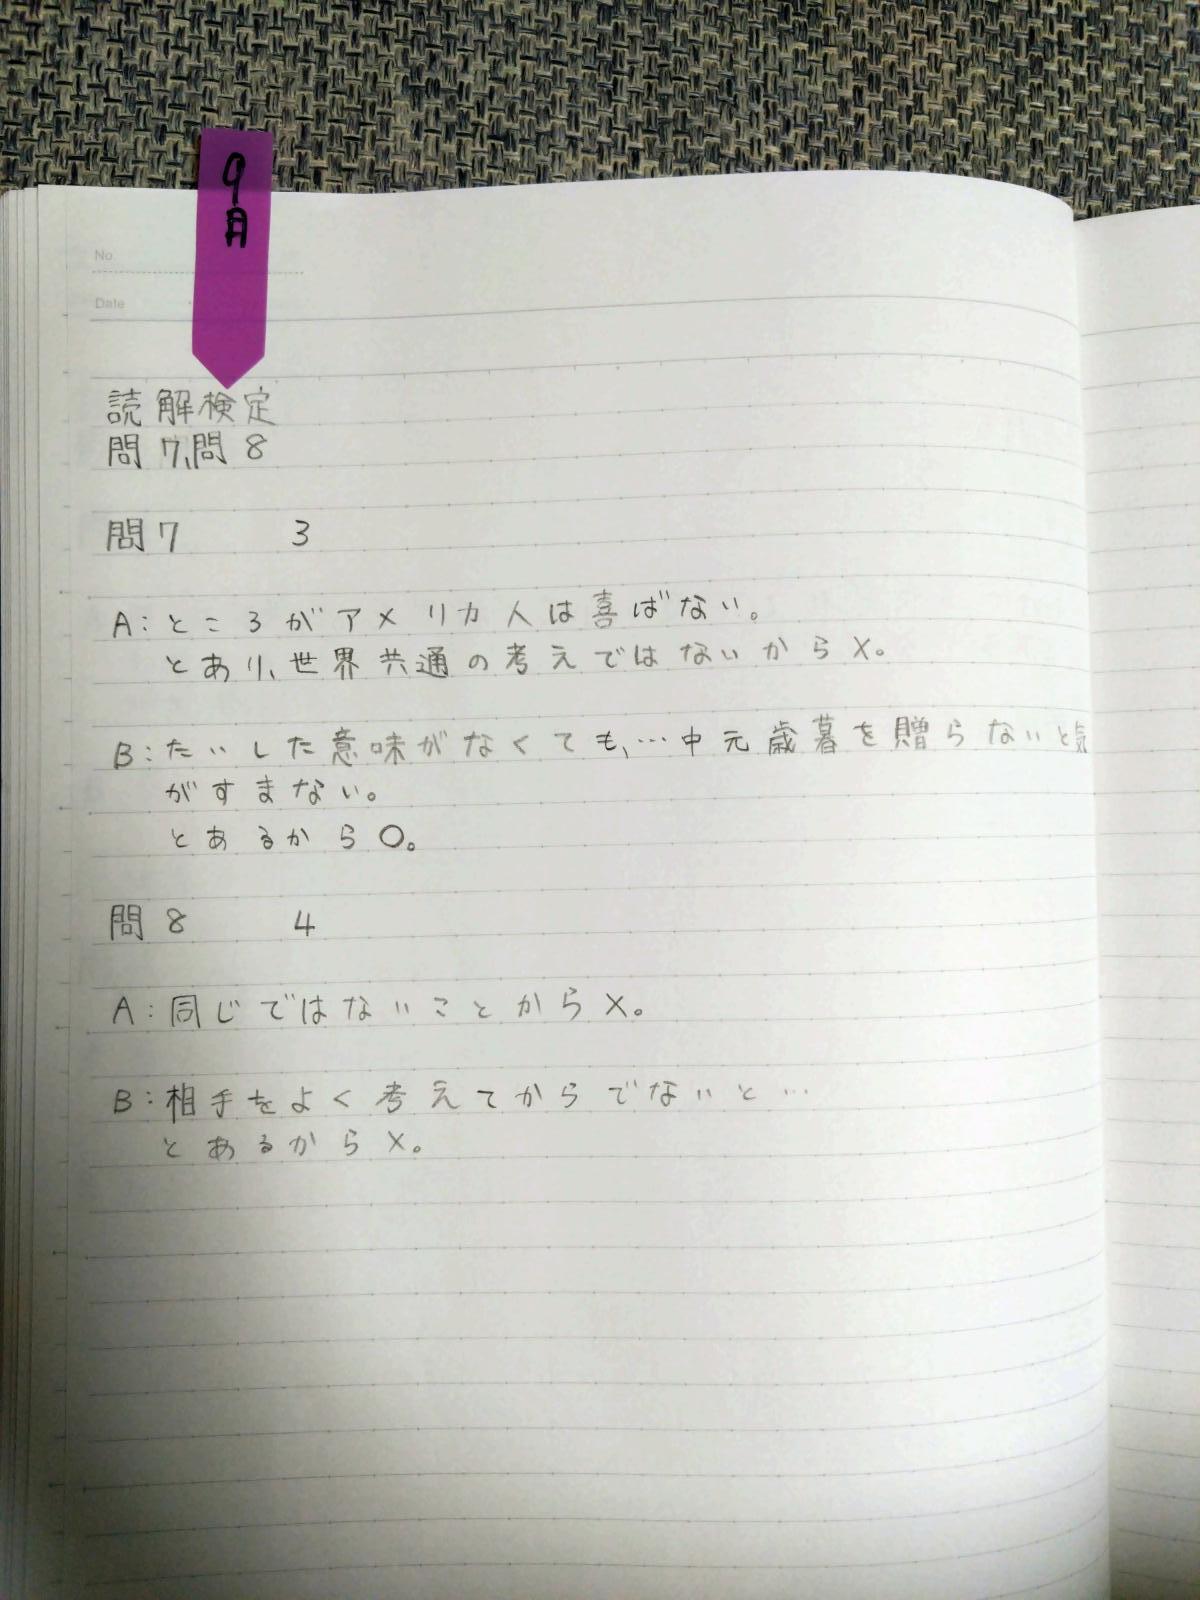 9月
No.
Date
読解検定
問7、問8
問7 3
A:ところがアメリカ人は喜ばない。
とあり、世界共通の考えではないから×。
B:たいした意味がなくても、…中元歳暮を贈らないと気
がすまない。
とあるから○。
問8 4
A:同じではないことから×。
B:相手をよく考えてからでないと…
とあるから×。